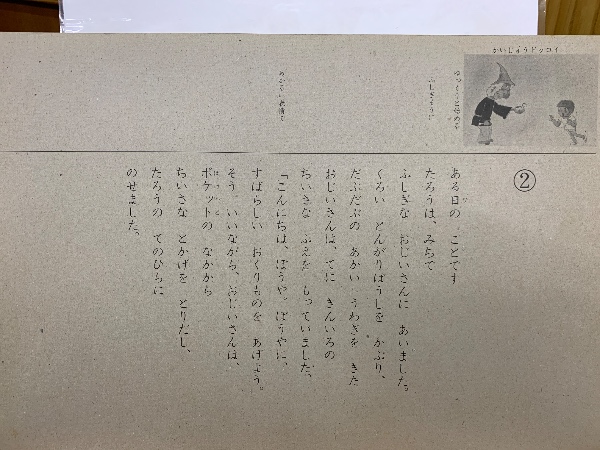 かいじゅうドッコイ
ゆっくりと始める
ふしぎそうに
あかるい表情で
②
ある日の ことです
たろうは、みちで
ふしぎな おじいさんに あいました。
くろい とんがりぼうしを かぶり、
だぶだぶの あかい うわぎを きた
おじいさんは、てに きんいろの
ちいさな ふえを もっていました。
「こんにちは、ぼうや。ぼうやに、
すばらしい おくりものを あげよう。」
そう いいながら、おじいさんは、
ポケットの なかから
ちいさな とかげを とりだし、
たろうの てのひらに
のせました。